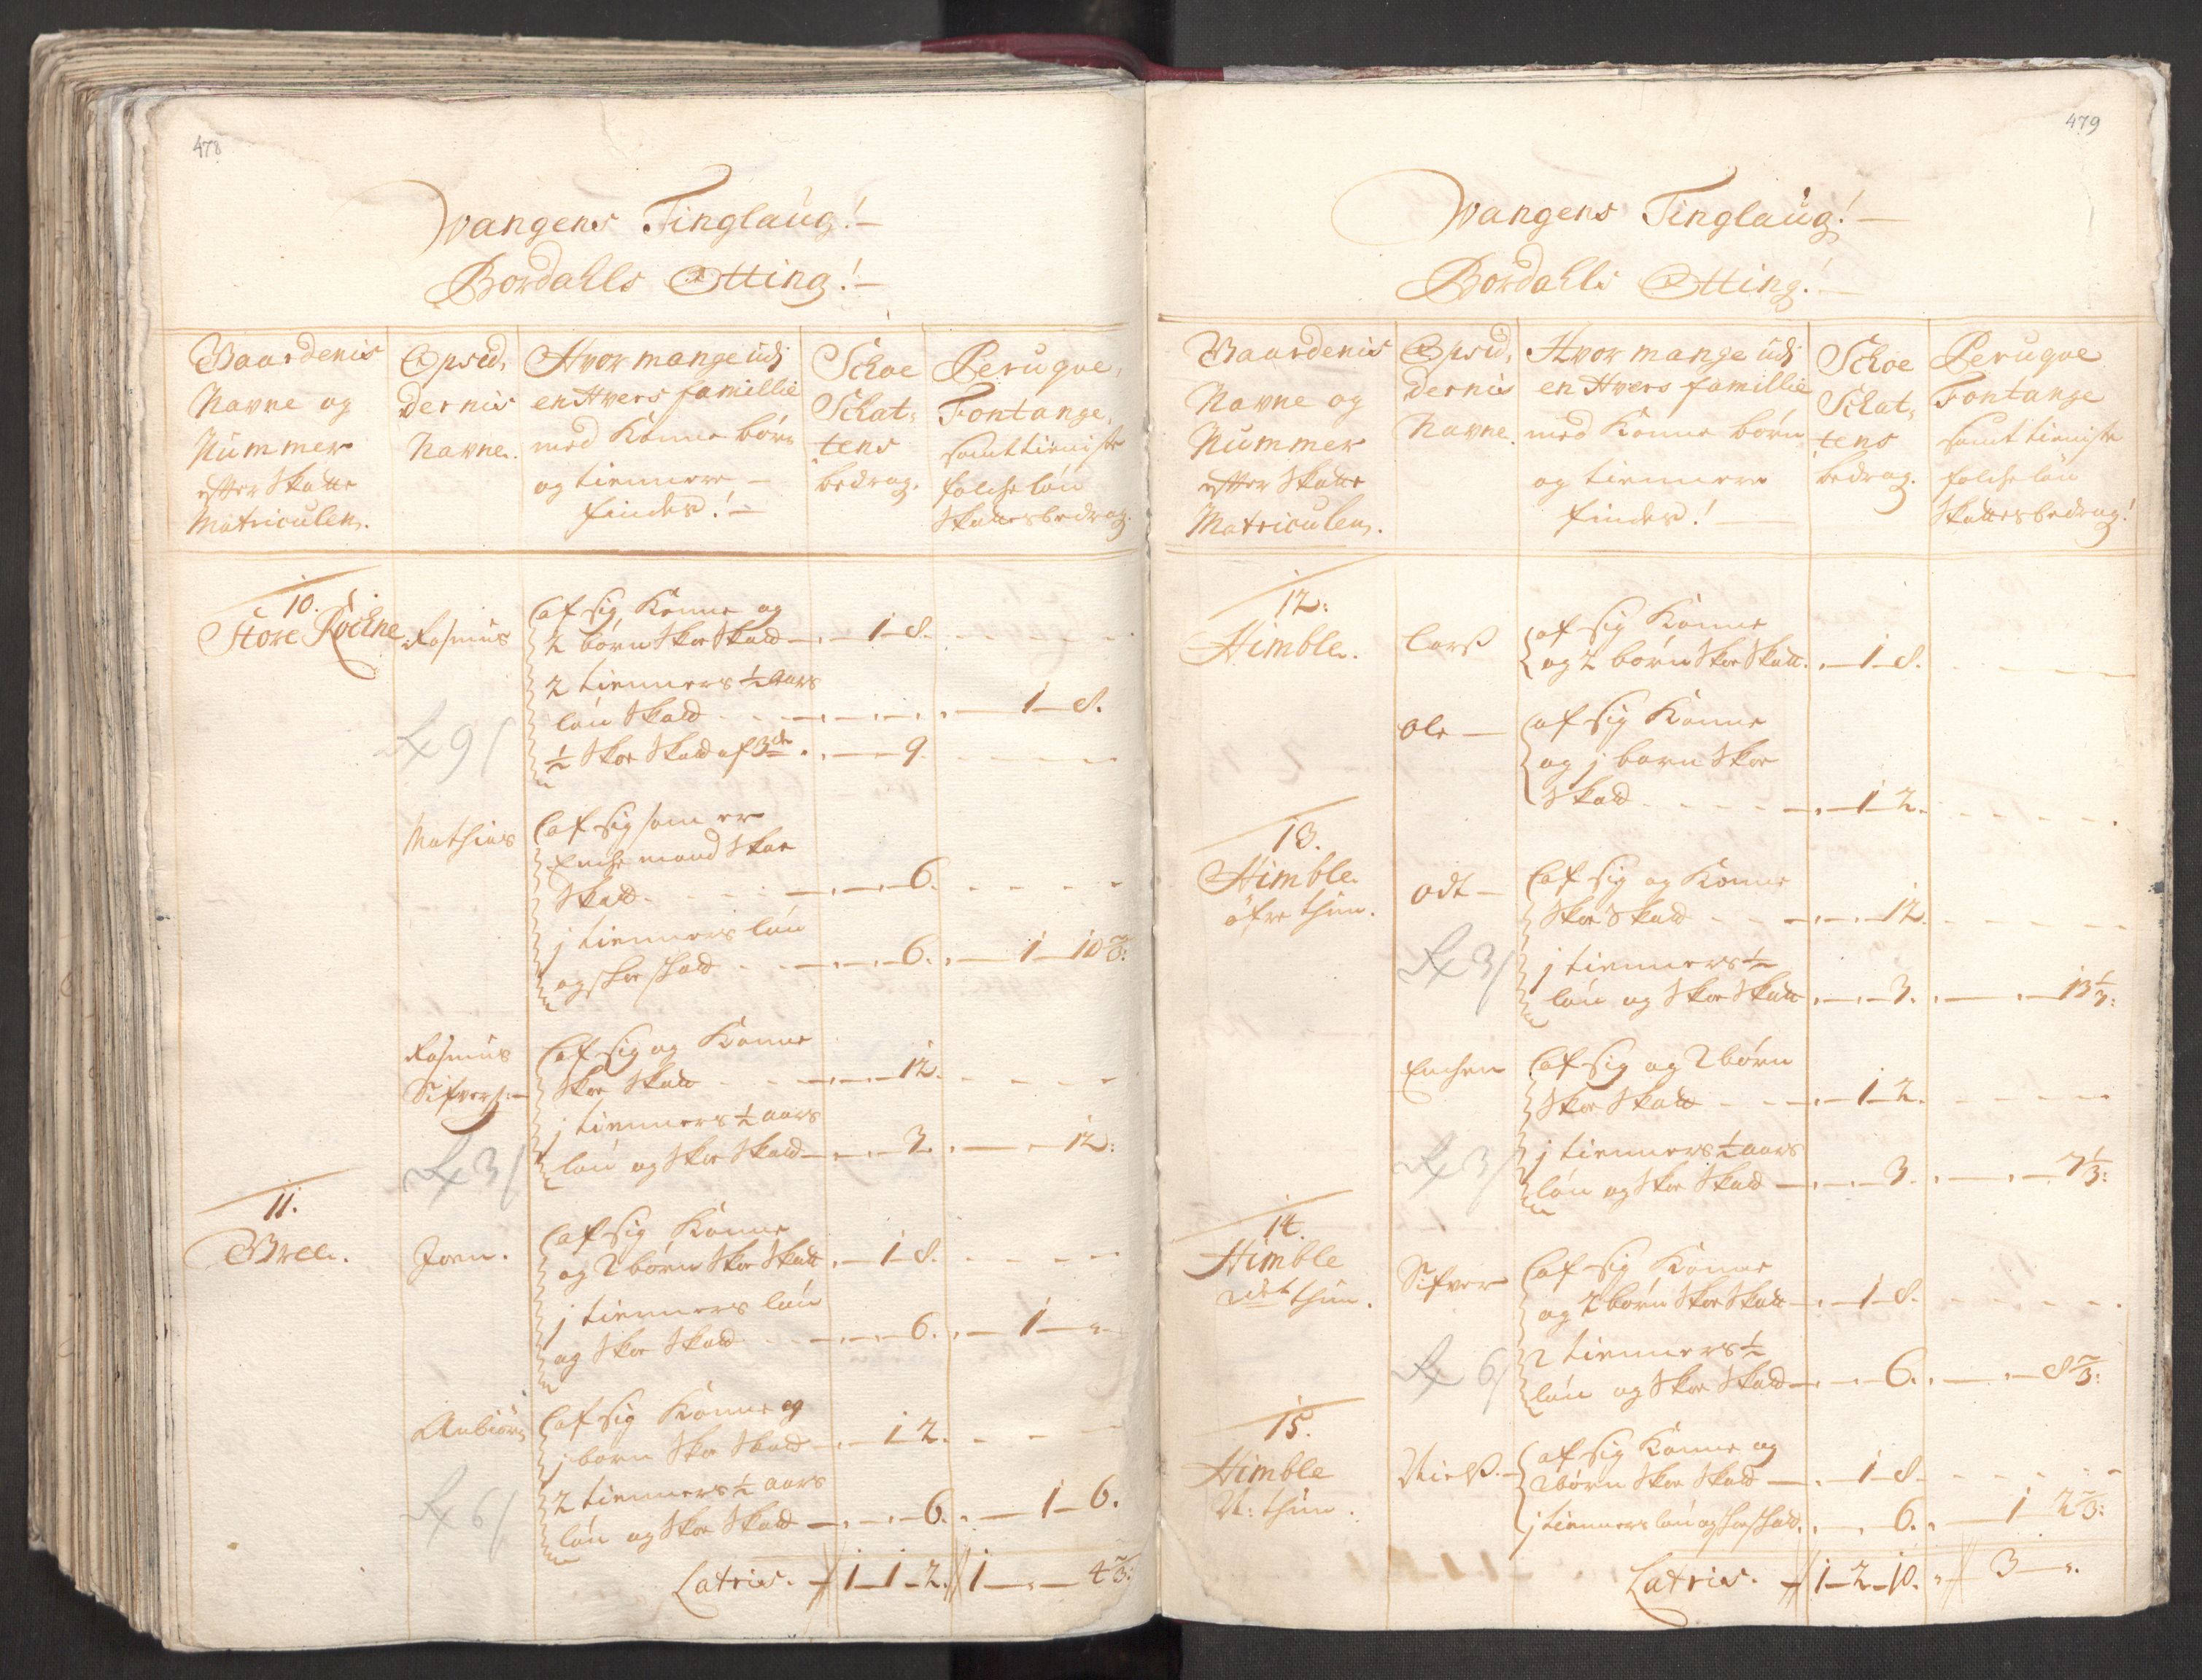 478
Wangens Tinglaug!
Bordahls Otting!
Gaardenis
Navne og
Nummer
efter Skatte
Matriculen.
Opsid,
dernis
Navne.
Hvor mange udj
en Hvers famillie
med Konne börn
og tiennere
findes!
Schoe
Schat,
tens
bedrag.
Peruqve,
Fontange,
samt tieniste
folche lön
Skattes bedrag.
10.
Store
Rasmus
af sig Konne og
2 börn Skoe Skatt 1 - 8.
2 tienners ½ Aars
lön Skatt 1 - 8.
½ Skoe Skatt af 3de 9.
Rx 9/
Mathias
af sig som er
Enche mand Skoe
Skatt 6.
j tienners lön
og skoe skatt 6. 1 - 10 2/3:
Rasmus
Sifvers:
af sig og Konne
Skoe Skatt 12.
j tienners ½ aars
lön og Skoe Skatt 3. 12:
Rx 3/
11.
Gree.
Joen.
af sig Konne
og 2 börn Skoe Skatt 1 - 8.
j tienners lön
og Skoe Skatt 6. 1 - "
Anbiörn
af sig Konne og
j born Skoe Skatt 1 - 2.
2 tienners ½ aars
lön og Skoe Skatt 6. 1 - 6.
Rx 6/
Latris. 1 - 1 - 2. 1 - " - 4 2/3:
479
Wangens Tinglaug!
Bordahls Otting!
Gaardenis
Navne og
Nummer
efter Skatte
Matriculen.
Opsid,
dernis
Navne.
Hvor mange udj
en Hvers famillie
med Konne börn
og tiennere
findes!
Schoe
Schat,
tens
bedrag.
Peruqve
Fontange
samt tieniste
folche lön
Skattes bedrag!
12:
Himble.
Larß
af sig Konne
og 2 börn Skoe Skatt. 1 - 8.
Ole
af sig Konne
og j barn Skoe
Skatt 1 - 2.
13.
Himble
öfre thun.
Odt
af sig og Konne
Skoe Skatt 12.
j tienners ½
lön og Skoe Skatt 3. 13 1/3:
Rx 3/
Enchen
af sig og 2 börn
Skoe Skatt 1 - 2.
j tienners ½ aars
lön og Skoe Skatt 3. 7 1/3:
Rx 3/
14.
Himble
thun.
Sifver
af sig Konne
og 2 börn Skoe Skatt 1 - 8.
2 tienners ½
lön og Skoe Skatt 6. 8 2/3:
Rx 6/
15.
Himble
N: thun.
Nielß.
af sig Konne og
2 börn Skoe Skatt 1 - 8.
j tienners lön og skoe skatt. 6. 1 2 2/3:
Latris. 1 - 2 - 10. " 3 - ".